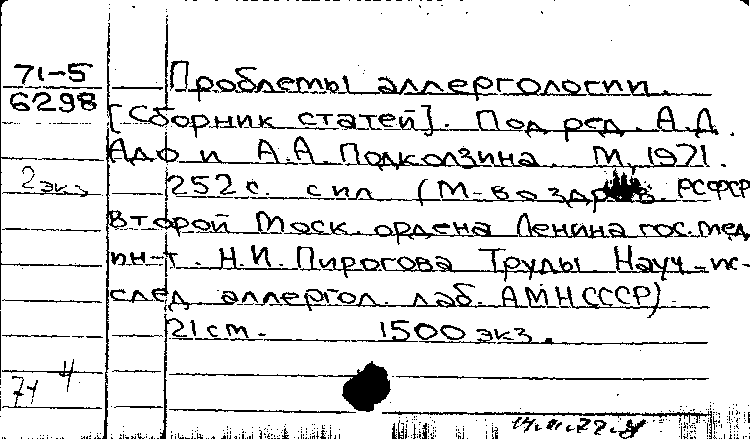 71-5
6298
Проблемы аллергологии.
[Сборник статей]. Под ред. А.Д.
Адо и А.А. Подколзина. М, 1971.
2 экз
252 с. с ил (М-во здрав. РСФСР
Второй Моск. ордена Ленина гос. мед
ин-т. Н.И. Пирогова Труды Науч-ис-
след аллергол. лаб. АМН СССР)
21 см. 1500 экз.
74 4